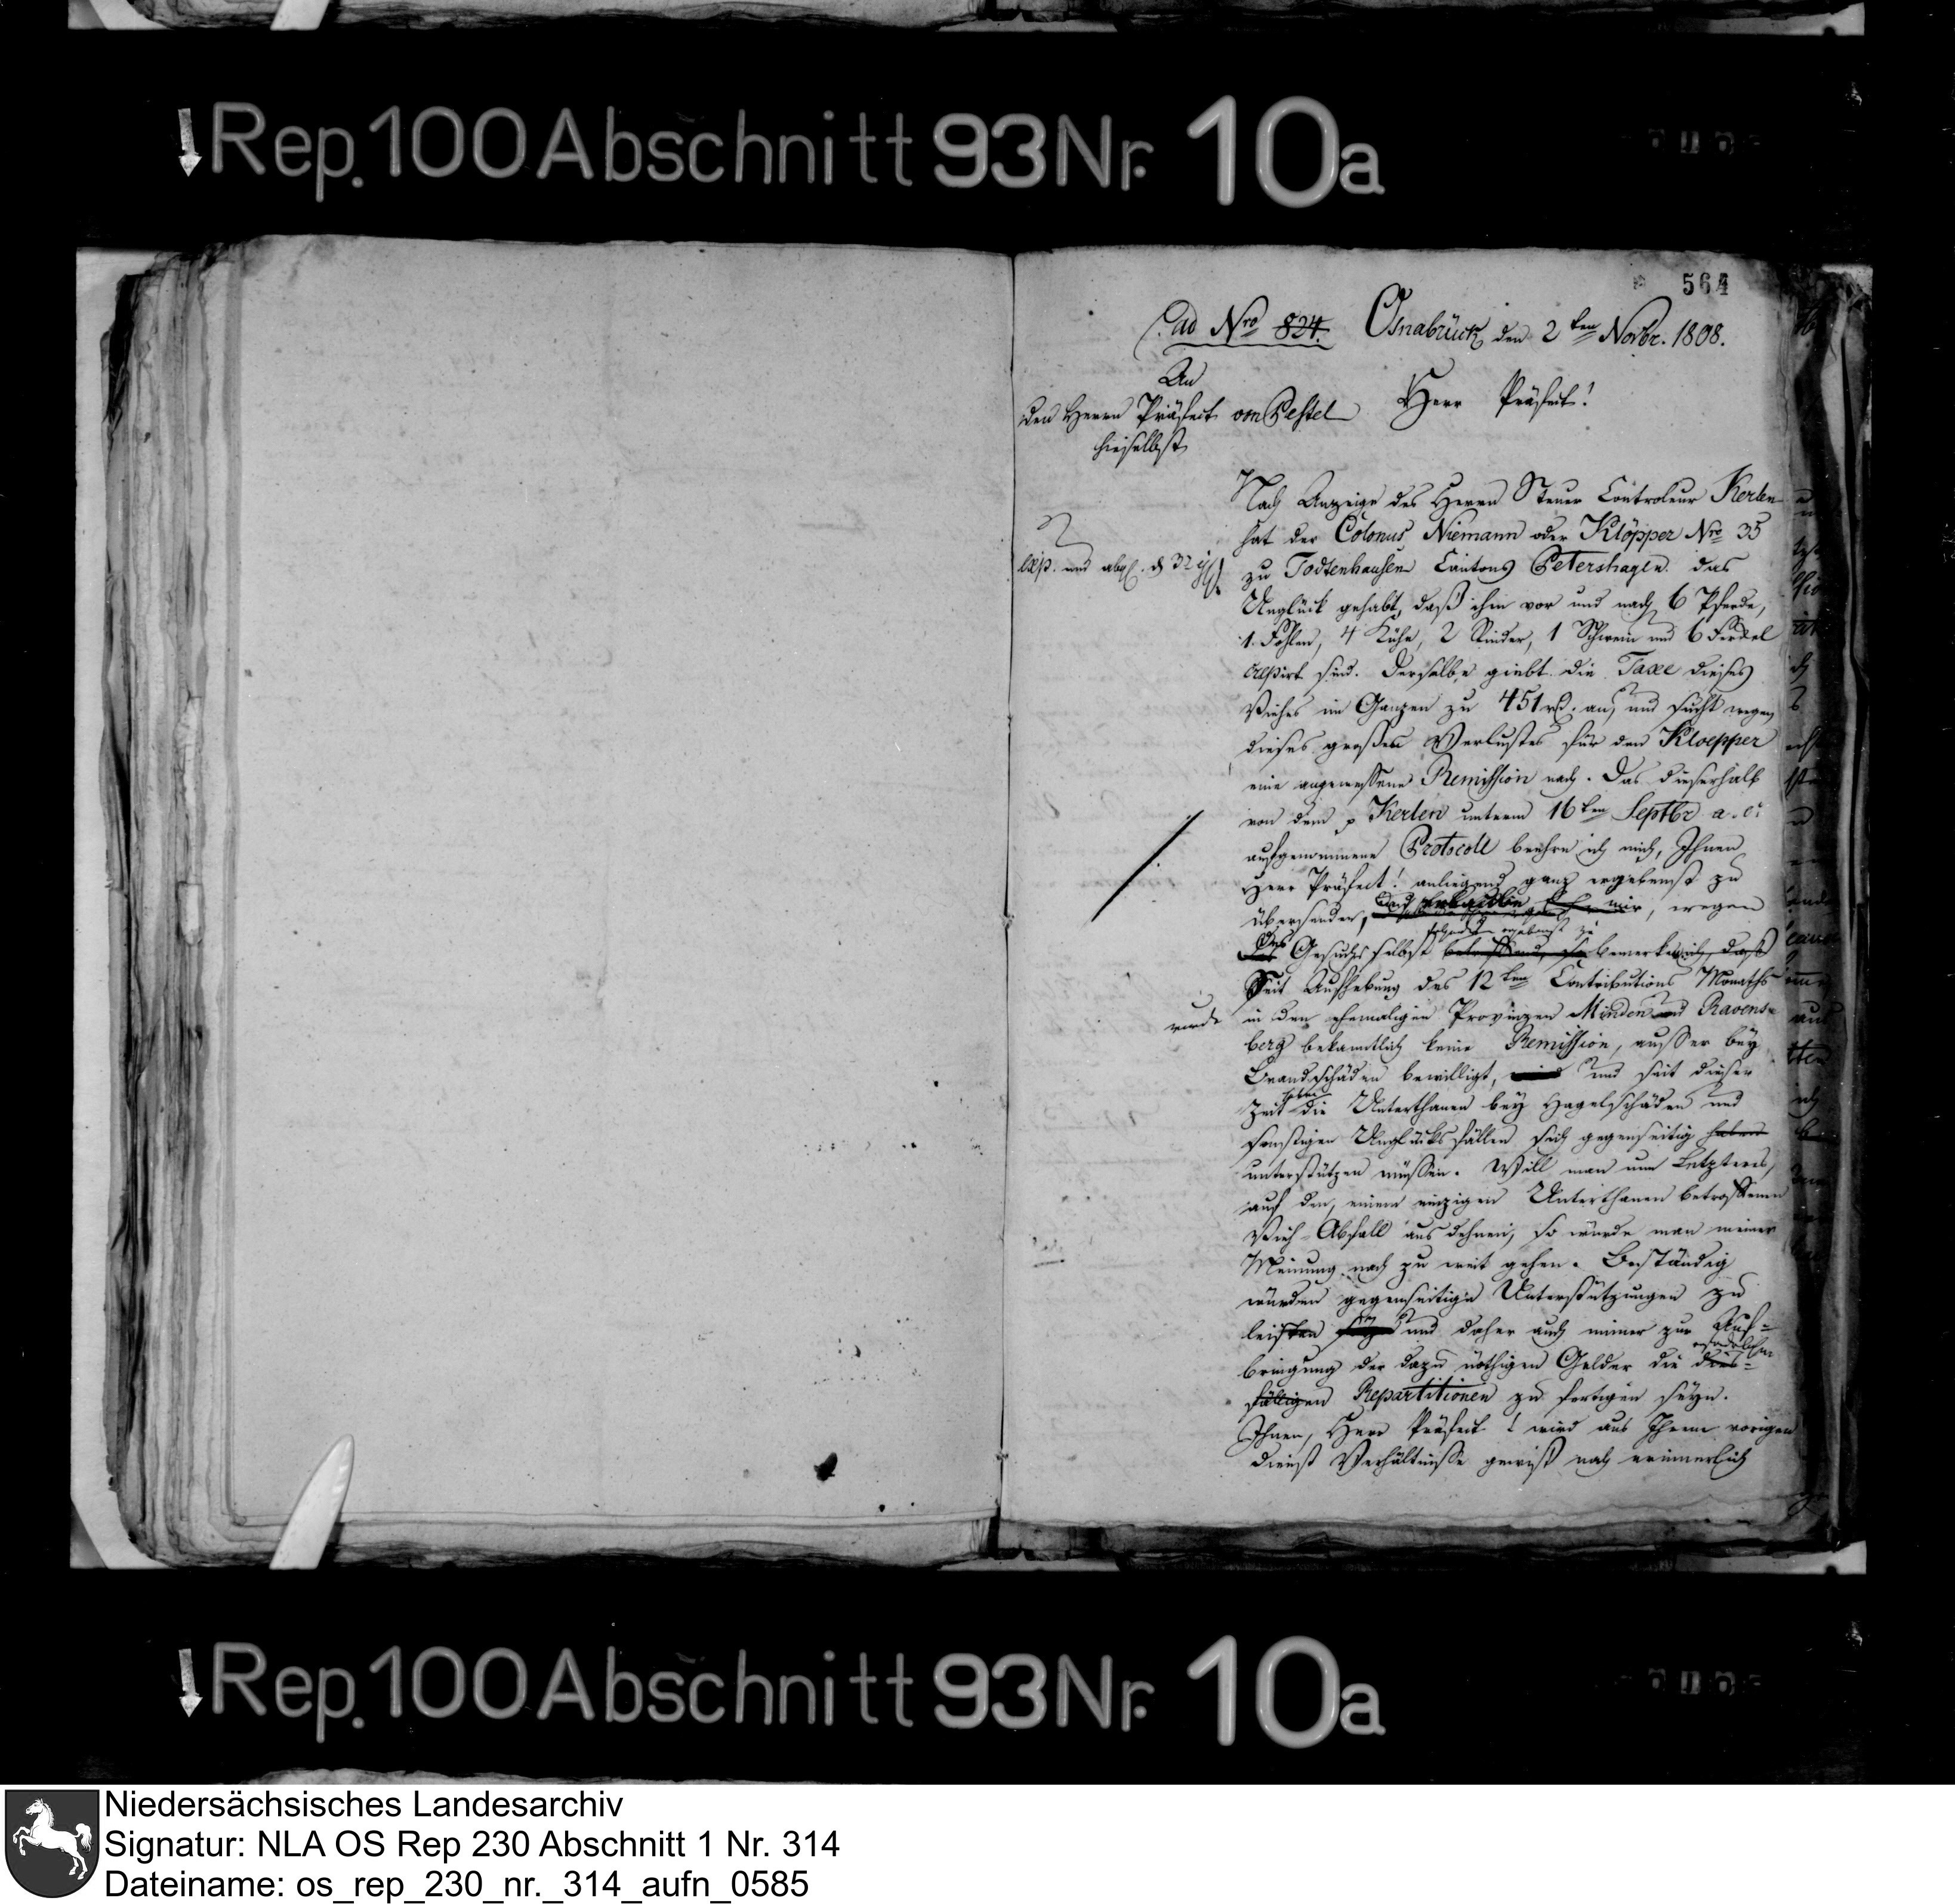 Rep. 100 Abschnitt 93 Nr. 10a
564
ad Nro 824. Osnabrück, den 2ten Novbr. 1808.
An
den Herrn Präfect von Pestel
hieselbst
Herr Präfect!
Nach Anzeige des Herrn Steuer Controleur Kerlen
hat der Colonus Niemann oder Klöpper Nro 35
zu Todtenhausen Cantons Petershagen das
Unglück gehabt, daß ihm vor und nach 6 Pferde,
1. Fohlen, 4 Kühe, 2 Rinder, 1 Schwein und 6 Ferkel
crepirt sind. Derselbe giebt die Taxe dieses
Viehes im Ganzen zu 451 rt. an, und sucht wegen
dieses großen Verlustes für den Kloepper
eine angemessene Remission nach. Das dieserhalb
von dem p Kerlen unterm 16ten Septbr a. c.
aufgenommene Protocoll beehre ich mich, Ihnen
Herr Präfect! anliegend ganz ergebenst zu
übersenden, und erlaube mir, wegen
des Gesuchs selbst folgendes ergebenst zu bemerken, daß
Seit Aufhebung des 12ten Contributions Monaths
wurde in den ehemaligen Provinzen Minden und Ravens-
berg bekanntlich keine Remission, ausser bey
Brandschäden bewilligt, und seit dieser
Zeit haben die Unterthanen bey Hagelschäden und
sonstigen Unglücksfällen sich gegenseitig haben
unterstützen müssen. Will man nun Letzteres,
auf den, einem einzigen Unterthanen betroffenen
Vieh-Abfall ausdehnen, so würde man meiner
Meinung nach zu weit gehen. Beständig
würden gegenseitige Unterstützungen zu
leisten und daher auch immer zur Auf-
bringung der dazu nöthigen Gelder die erforderlichen dies-
fälligen Repartitionen zu fertigen seyn.
Ihnen, Herr Präfect! wird aus Ihrem vorigen
Dienst Verhältnisse gewiß noch erinnerlich
Rep. 100 Abschnitt 93 Nr. 10a
Niedersächsisches Landesarchiv
Signatur: NLA OS Rep 230 Abschnitt 1 Nr. 314
Dateiname: os_rep_230_nr._314_aufn_0585